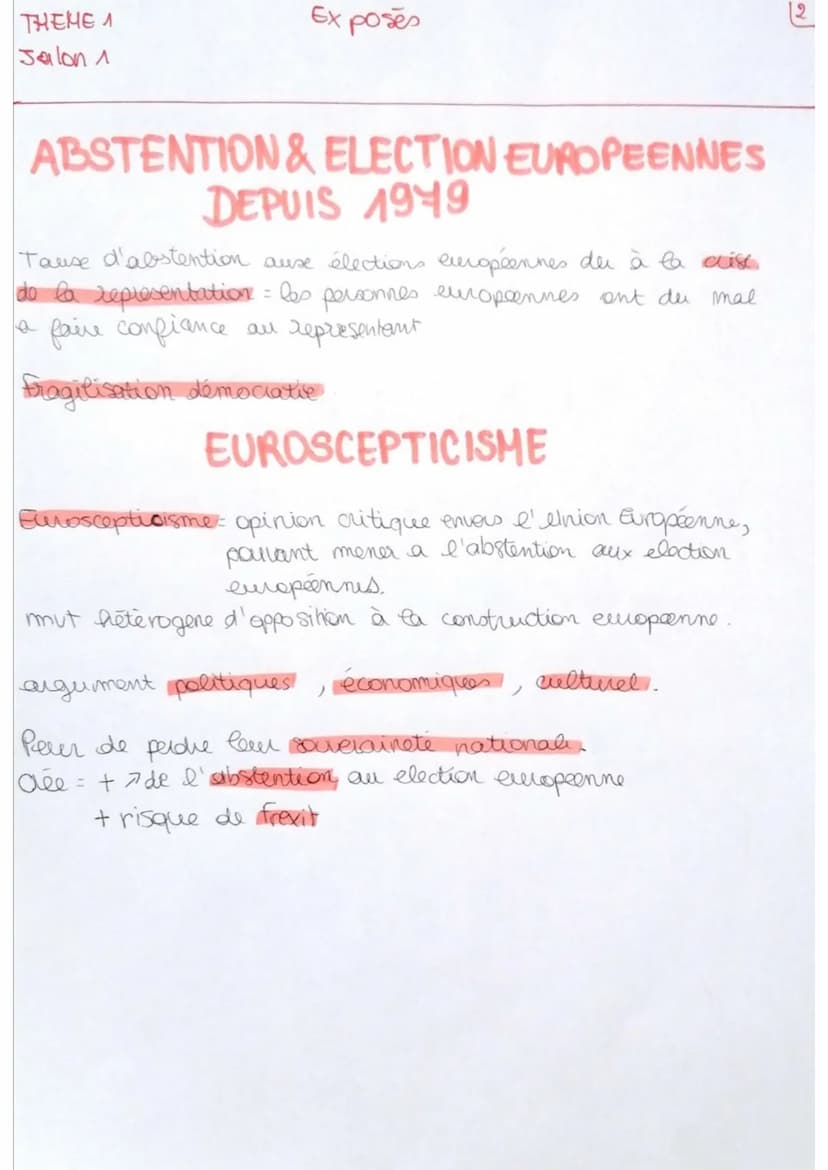 THEME 1
Exposés
2
Jalon 1
ABSTENTION & ELECTION EUROPEENNES
DEPUIS 1979
Taux d'abstention aux élections européennes du à la crise
de la representation = les personnes européennes ont du mal
a faire confiance au representant
fragilisation démocratie
EUROSCEPTICISME
Euroscepticisme = opinion critique envers l'Union Européenne,
pouvant mener a l'abstention aux election
européennes.
mvt hétèrogene d'opposition à la construction européenne.
argument politiques, économiques, culturel.
Peur de perdre leur souveraineté nationale.
Crée = + ↗ de l'abstention au election européenne
+ risque de frexit